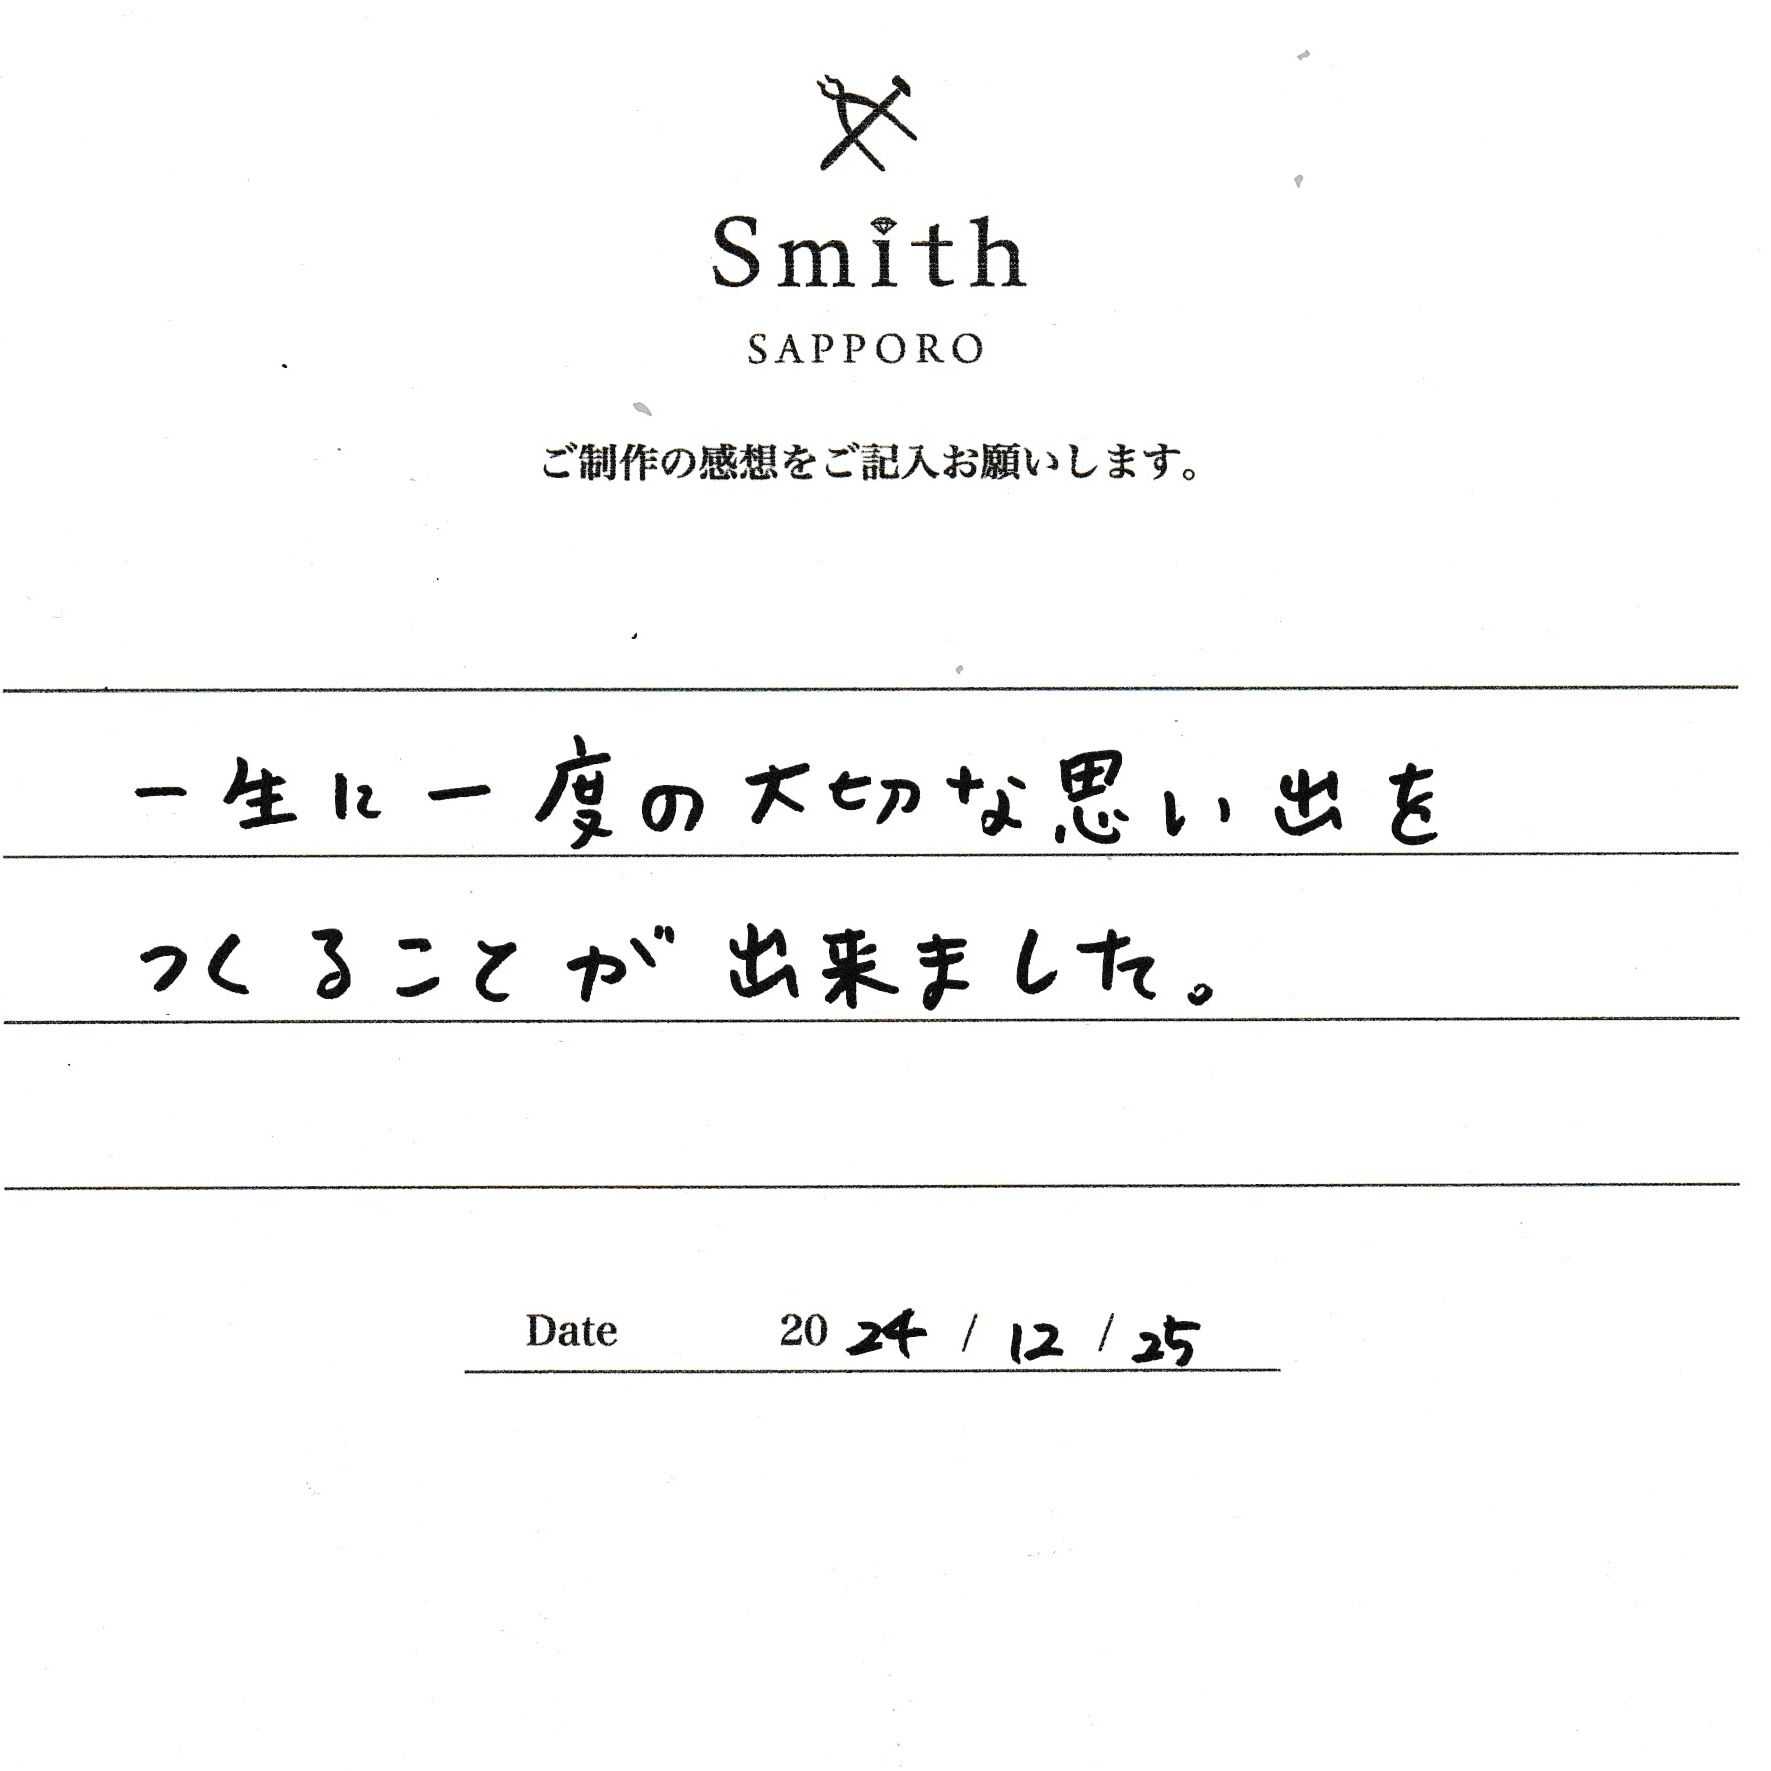 Smith
SAPPORO
ご制作の感想をご記入お願いします。
一生に一度の大切な思い出を
つくることが出来ました。
Date 2024 / 12 / 25